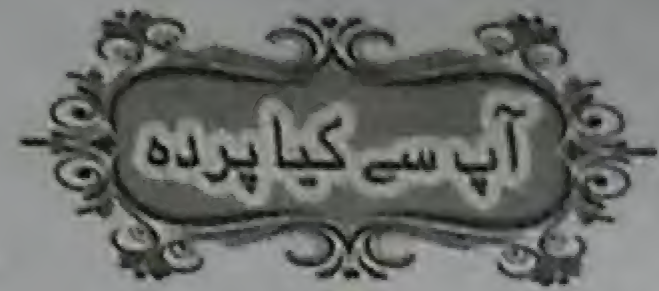 آپ سے کیا پردہ